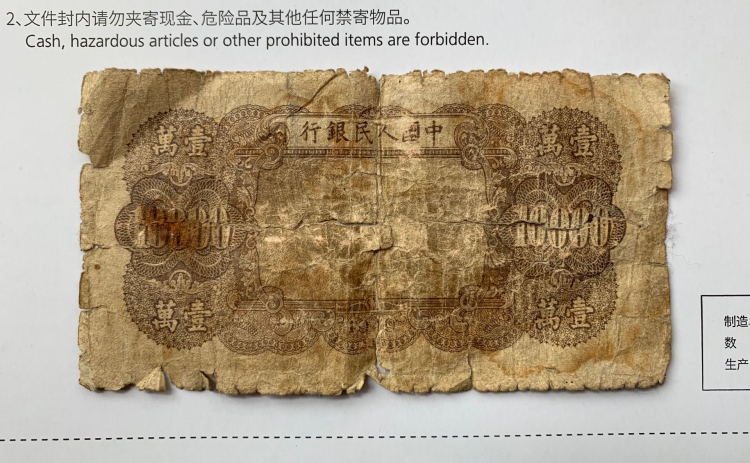 2、文件封内请勿夹寄现金、危险品及其他任何禁寄物品。
Cash, hazardous articles or other prohibited items are forbidden.
行銀民人國中
萬壹
萬壹
10000
10000
萬壹
萬壹
制造
数
生产